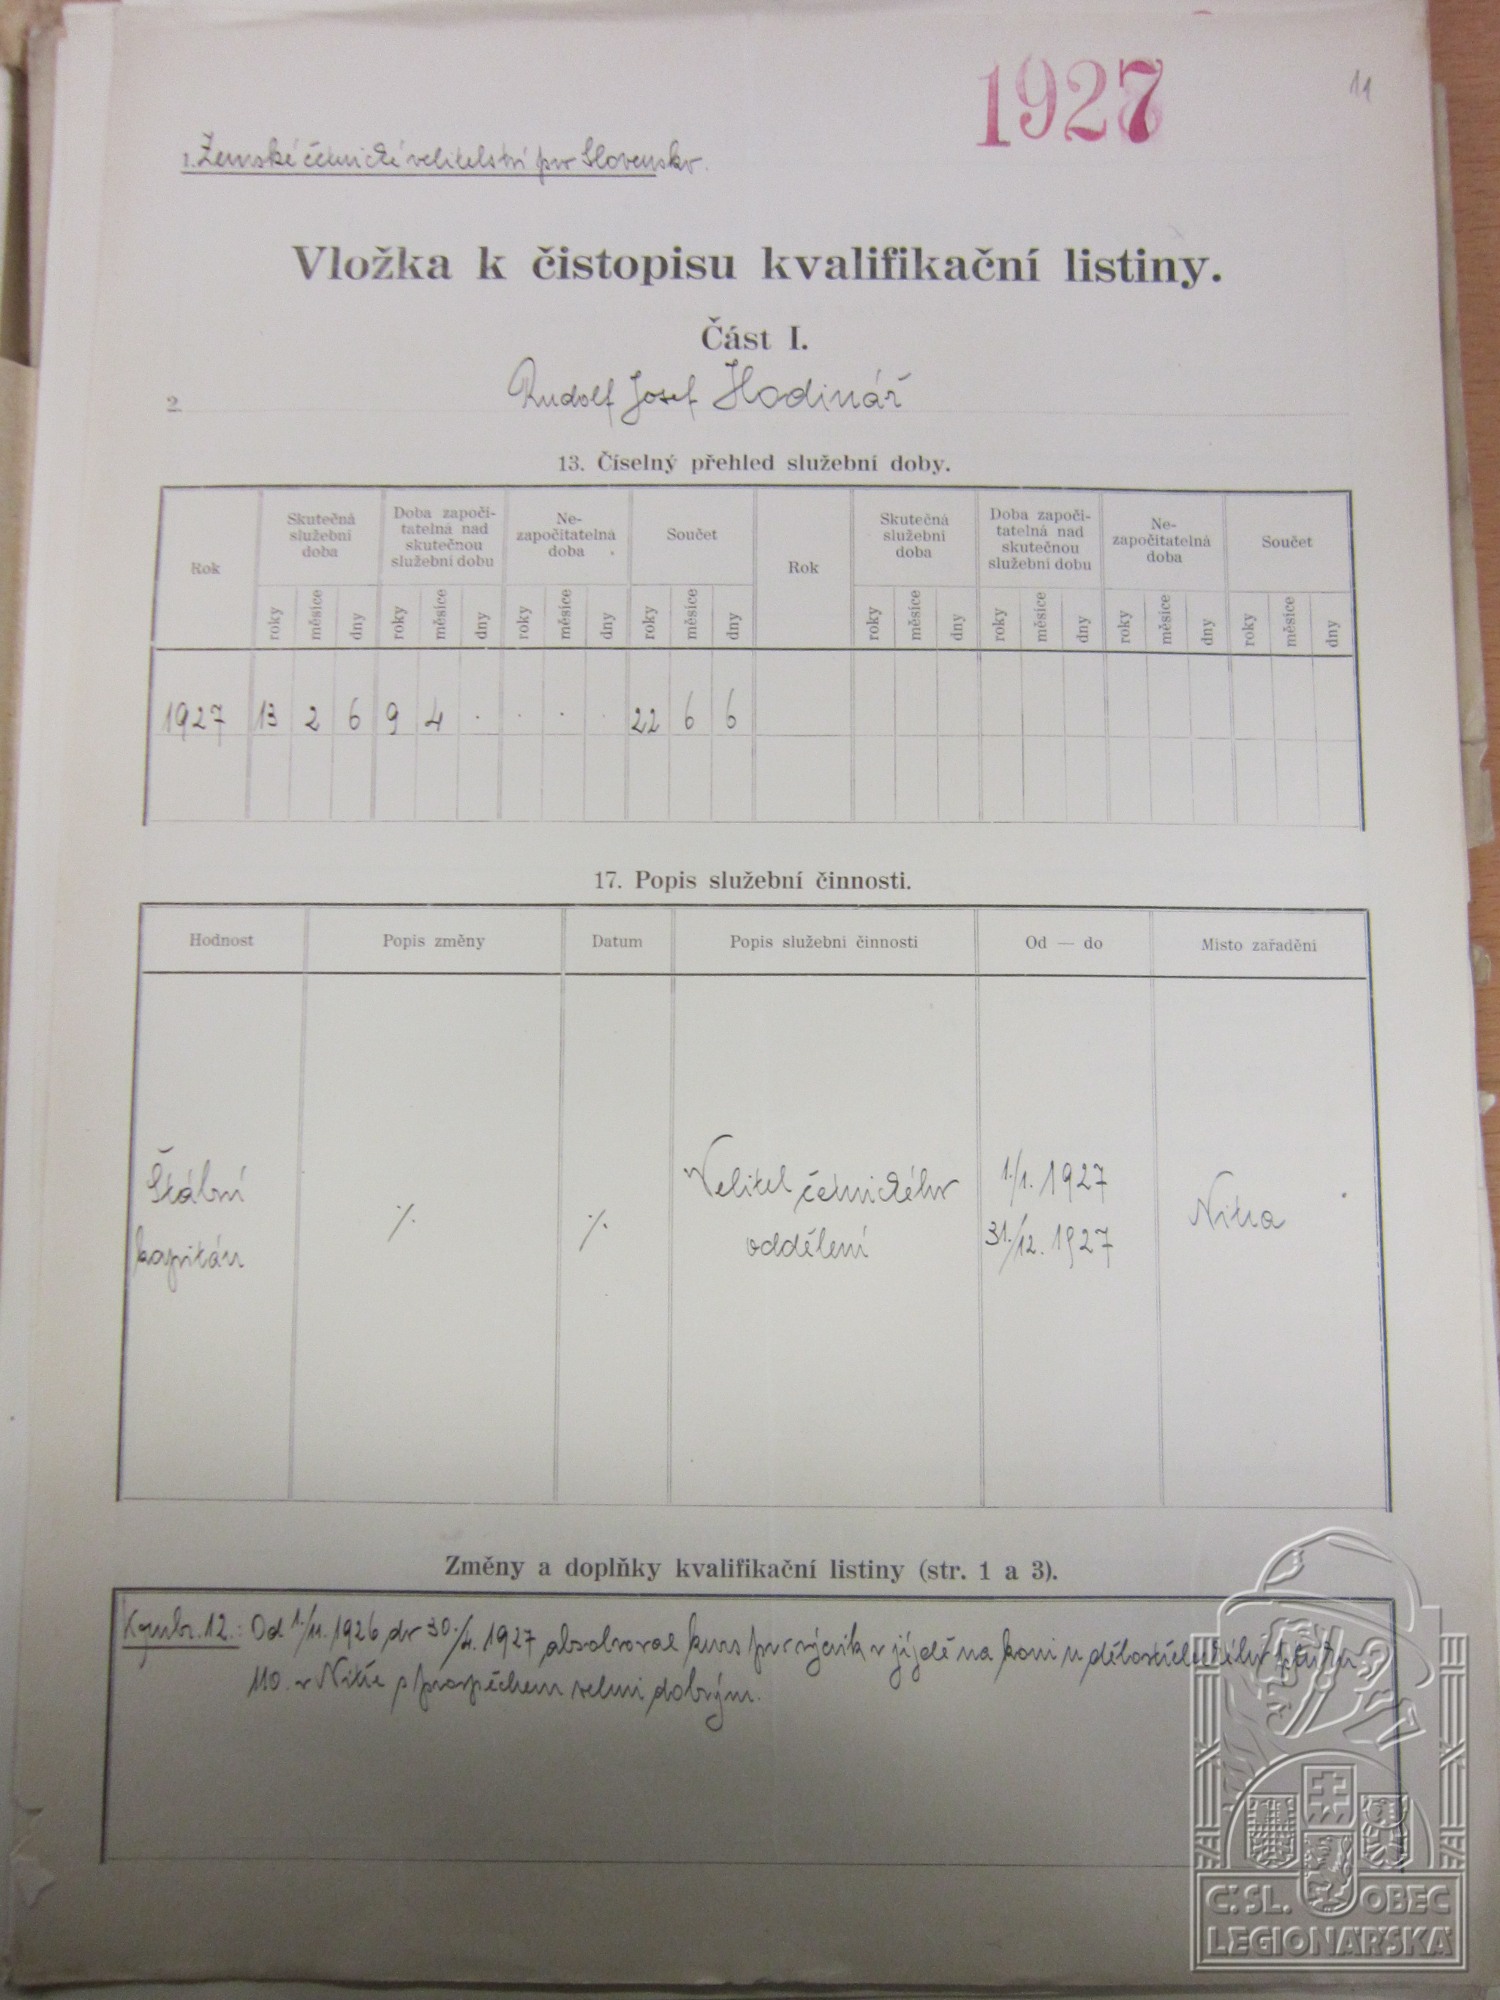 1927
11
1. Zemské četnické velitelství pro Slovensko.
Vložka k čistopisu kvalifikační listiny.
Část I.
2. Rudolf Josef Hodinář
13. Číselný přehled služební doby.
Rok Skutečná služební doba Doba započitatelná nad skutečnou služební dobu Nezapočitatelná doba Součet Rok Skutečná služební doba Doba započitatelná nad skutečnou služební dobu Nezapočitatelná doba Součet
roky měsíce dny roky měsíce dny roky měsíce dny roky měsíce dny roky měsíce dny roky měsíce dny roky měsíce dny roky měsíce dny
1927 13 2 6 9 4 . . . . 22 6 6
17. Popis služební činnosti.
Hodnost Popis změny Datum Popis služební činnosti Od — do Místo zařadění
Štábní kapitán ·/. ·/. Velitel četnického oddělení 1./1. 1927 31./12. 1927 Nitra
Změny a doplňky kvalifikační listiny (str. 1 a 3).
12.: Od 1./11. 1926 do 30./4. 1927 absolvoval kurs pro výcvik v jízdě na koni u dělostřeleckého pluku
110. v Nitře s prospěchem velmi dobrým.
Č.SL. OBEC
LEGIONÁŘSKÁ